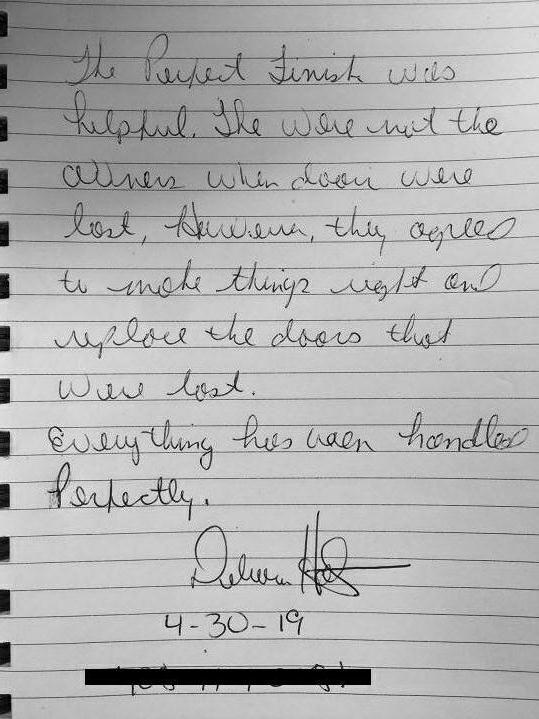 The Perfect Finish was
helpful. The were not the
owners when doors were
lost, However, they agreed
to make things right and
replace the doors that
were lost.
Everything has been handled
Perfectly.
4-30-19